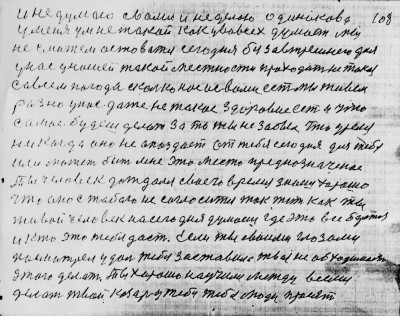 и не думаю с вами и не делаю одинаково 108
у меня ум не такой как у вас всех думает ему
не сможет остоватся сегодня без завтрешнего дня
у нас у нашей такой местности проходит не такая
совсем погода сколко нас с вами есть мы живем
разно у нас даже не такое здоровие есть и это
самое будем делат За то ты не забывай что время
никогда оно не опоздает от тебя сегодня для тебя
или может быт мне это место предназначеное
Ты человек дождался своего время знаеш хорошо
что оно с тобою не согласится так жит как ты
живой человек на сегодня думаеш где это все братся
и кто это тебе даст. Если ты своими глазами
посмотрел у дал тебя заставило твоя не обходимость
этого делат Ты хорошо научился между всеми
делат твой у тебя тебе люди